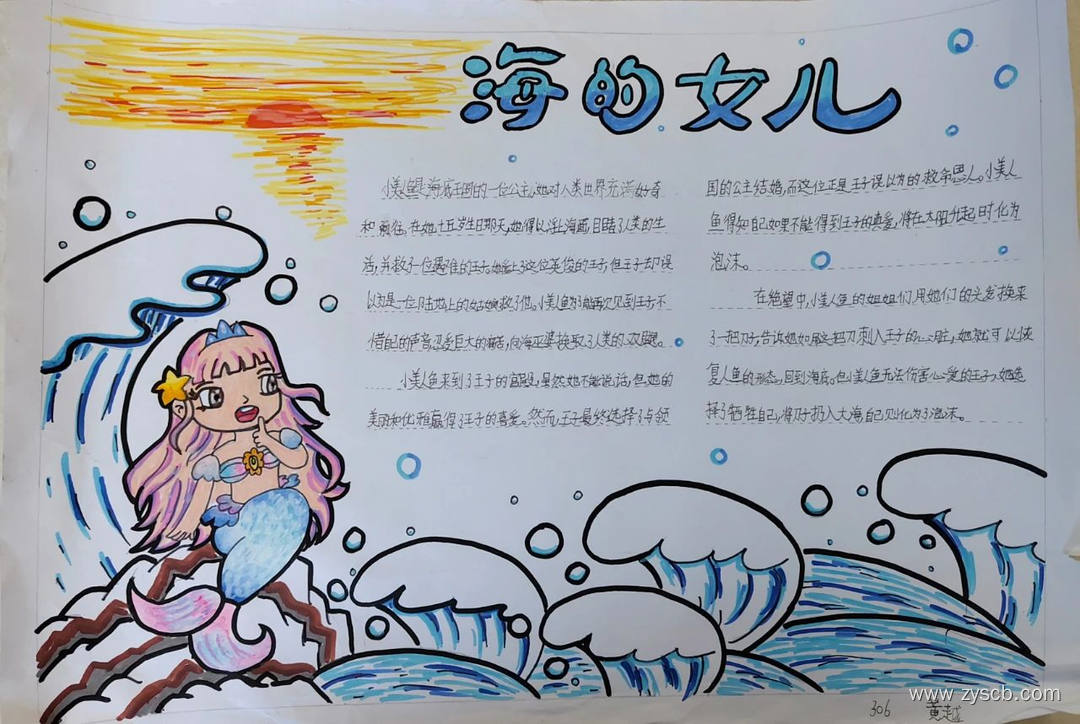 海的女儿
小美人鱼是海底王国的一位公主,她对人类世界充满好奇
和向往。在她十五岁生日那天,她得以浮上海面目睹了人类的生
活,并救了一位遇难的王子。她爱上了这位英俊的王子,但王子却误
以为是一位陆地上的姑娘救了他。小美人鱼为了能再次见到王子,不
惜自己的声音忍受巨大的痛苦,向海巫婆换取了人类的双腿。
小美人鱼来到了王子的宫殿,虽然她不能说话,但她的
美丽和优雅赢得了王子的喜爱。然而,王子最终选择了与邻
国的公主结婚,而这位正是王子误以为的救命恩人。小美人
鱼得知自己如果不能得到王子的真爱,将在太阳升起时化为
泡沫。
在绝望中,小美人鱼的姐姐们,用她们的头发换来
了一把刀子,告诉她如果把刀刺入王子的心脏,她就可以恢
复人鱼的形态,回到海底。但小美人鱼无法伤害心爱的王子,她选
择了牺牲自己,将刀子扔入大海自己则化为了泡沫。
www.zyscb.com
306 黄越